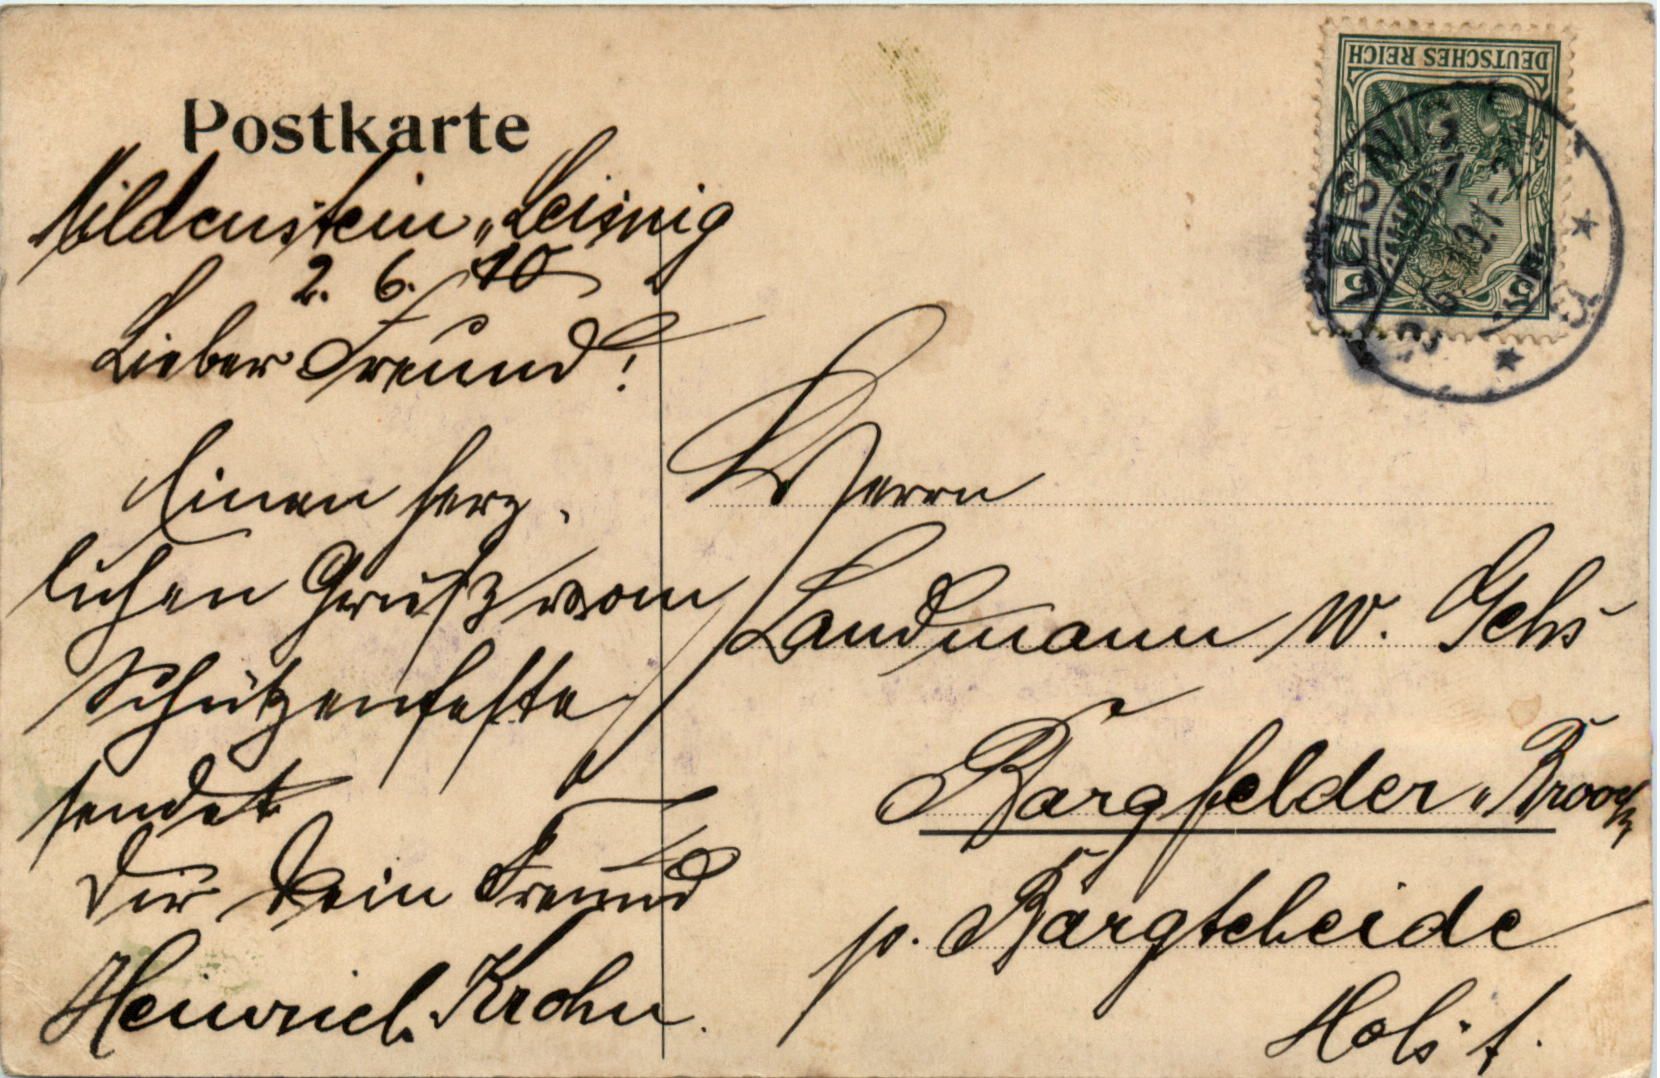 Postkarte
Mildenstein „Leisnig
2. 6. 10
Lieber Freund!
Einen herz-
lichen Gruß vom
Schützenfeste
sendet
Dir Dein Freund
Heinrich Krohn.
DEUTSCHES REICH
5 5
LEISNIG
Herrn
Landmann W. Gehs
Bargfelder „Brook
p. Bargteheide
Holst.